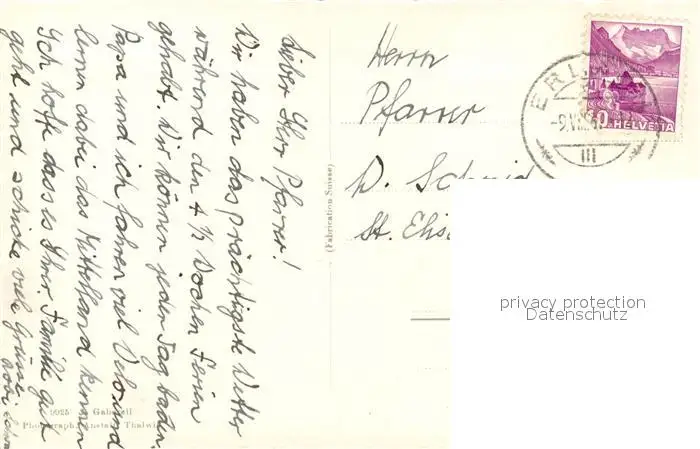 Lieber Herr Pfarrer!
Wir haben das prächtigste Wetter
während den 4 ½ Wochen Ferien
gehabt. Wir können jeden Tag baden.
Papa und ich fahren viel Velo und
lernen dabei das Mittelland kennen
Ich hoffe dass es Ihrer Familie gut
geht und schicke viele Grüsse.
Herrn
Pfarrer
D. Schmid
St. Elis
(Fabrication Suisse)
9025 Gaberell
Photograph. Anstalt Thalwil
HELVETIA
III
privacy protection
Datenschutz